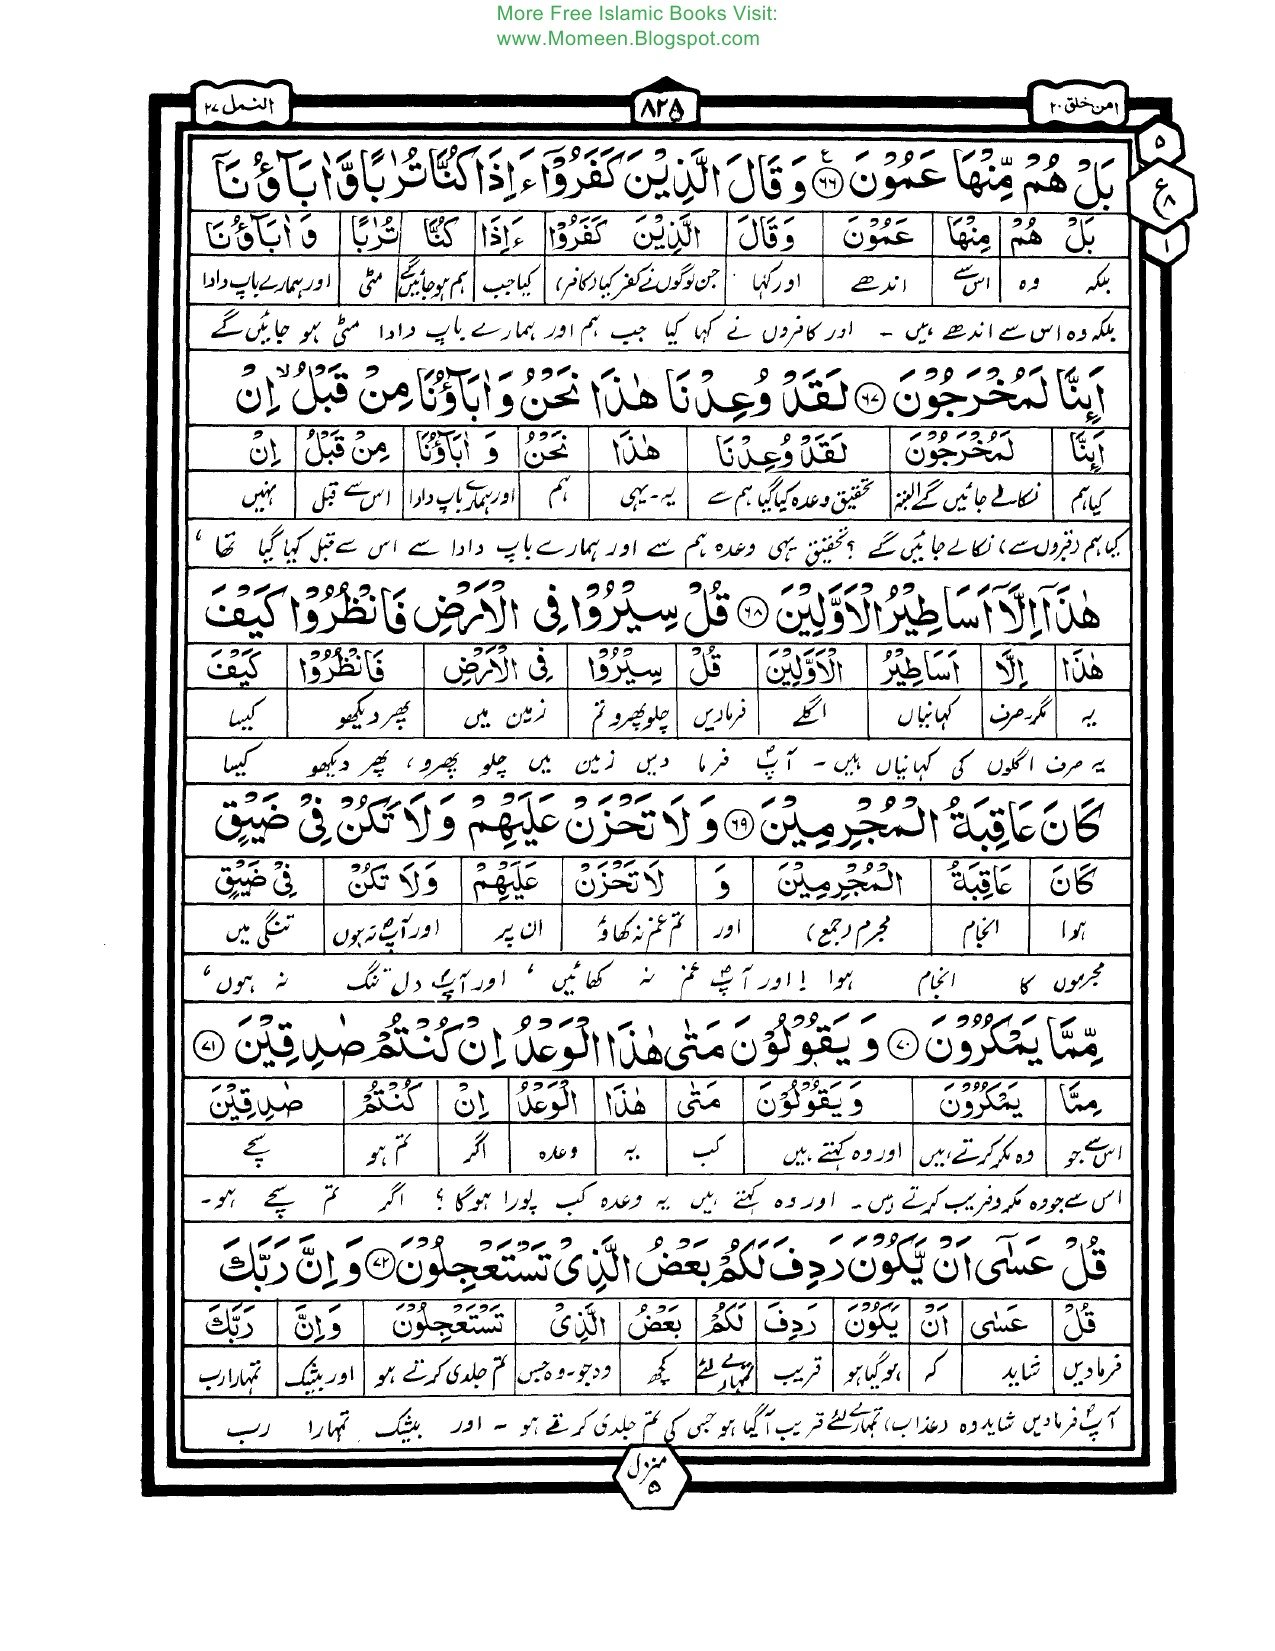 More Free Islamic Books Visit:
www.Momeen.Blogspot.com
امن خلق ۲۰
۸۲۵
النمل ۲۷
۵
ع
۸
۱
بَلْ هُمْ مِّنْهَا عَمُوْنَ ﴿۶۶﴾ وَقَالَ الَّذِيْنَ كَفَرُوْٓا ءَاِذَا كُنَّا تُرٰبًا وَّاٰبَآؤُنَآ
بَلْ هُمْ مِنْهَا عَمُوْنَ وَقَالَ الَّذِيْنَ كَفَرُوْا ءَاِذَا كُنَّا تُرٰبًا وَاٰبَآؤُنَا
بلکہ وہ اس سے اندھے اور کہا جن لوگوں نے کفر کیا (کافر) کیا جب ہم ہو جائیں گے مٹی اور ہمارے باپ دادا
بلکہ وہ اس سے اندھے ہیں ۔ اور کافروں نے کہا کیا جب ہم اور ہمارے باپ دادا مٹی ہو جائیں گے
اَئِنَّا لَمُخْرَجُوْنَ ﴿۶۷﴾ لَقَدْ وُعِدْنَا هٰذَا نَحْنُ وَاٰبَآؤُنَا مِنْ قَبْلُ ۙ اِنْ
اَئِنَّا لَمُخْرَجُوْنَ لَقَدْ وُعِدْنَا هٰذَا نَحْنُ وَ اٰبَآؤُنَا مِنْ قَبْلُ اِنْ
کیا ہم نکالے جائیں گے البتہ تحقیق وعدہ کیا گیا ہم سے یہ ۔ یہی ہم اور ہمارے باپ دادا اس سے قبل نہیں
کیا ہم (قبروں سے) نکالے جائیں گے ؟ تحقیق یہی وعدہ ہم سے اور ہمارے باپ دادا سے اس سے قبل کہا گیا تھا ،
هٰذَآ اِلَّآ اَسَاطِيْرُ الْاَوَّلِيْنَ ﴿۶۸﴾ قُلْ سِيْرُوْا فِى الْاَرْضِ فَانْظُرُوْا كَيْفَ
هٰذَا اِلَّا اَسَاطِيْرُ الْاَوَّلِيْنَ قُلْ سِيْرُوْا فِى الْاَرْضِ فَانْظُرُوْا كَيْفَ
یہ مگر۔صرف کہانیاں اگلے فرمادیں چلو پھرو تم زمین میں پھر دیکھو کیسا
یہ صرف اگلوں کی کہانیاں ہیں ۔ آپؐ فرما دیں زمین میں چلو پھرو ، پھر دیکھو کیسا
كَانَ عَاقِبَةُ الْمُجْرِمِيْنَ ﴿۶۹﴾ وَلَا تَحْزَنْ عَلَيْهِمْ وَلَا تَكُنْ فِىْ ضَيْقٍ
كَانَ عَاقِبَةُ الْمُجْرِمِيْنَ وَ لَا تَحْزَنْ عَلَيْهِمْ وَلَا تَكُنْ فِىْ ضَيْقٍ
ہوا انجام مجرم (جمع) اور تم غم نہ کھاؤ ان پر اور آپؐ نہ ہوں تنگی میں
مجرموں کا انجام ہوا ! اور آپؐ غم نہ کھائیں ، اور آپؐ دل تنگ نہ ہوں ،
مِّمَّا يَمْكُرُوْنَ ﴿۷۰﴾ وَيَقُوْلُوْنَ مَتٰى هٰذَا الْوَعْدُ اِنْ كُنْتُمْ صٰدِقِيْنَ ﴿۷۱﴾
مِمَّا يَمْكُرُوْنَ وَيَقُوْلُوْنَ مَتٰى هٰذَا الْوَعْدُ اِنْ كُنْتُمْ صٰدِقِيْنَ
اس سے جو وہ مکر کرتے ہیں اور وہ کہتے ہیں کب یہ وعدہ اگر تم ہو سچے
اس سے جو وہ مکر و فریب کرتے ہیں ۔ اور وہ کہتے ہیں یہ وعدہ کب پورا ہوگا ؟ اگر تم سچے ہو ۔
قُلْ عَسٰٓى اَنْ يَّكُوْنَ رَدِفَ لَكُمْ بَعْضُ الَّذِىْ تَسْتَعْجِلُوْنَ ﴿۷۲﴾ وَاِنَّ رَبَّكَ
قُلْ عَسٰى اَنْ يَكُوْنَ رَدِفَ لَكُمْ بَعْضُ الَّذِىْ تَسْتَعْجِلُوْنَ وَاِنَّ رَبَّكَ
فرمادیں شاید کہ ہوگیا ہو قریب تمہارے لئے کچھ وہ جو۔وہ جس تم جلدی کرتے ہو اور بیشک تمہارا رب
آپؐ فرمادیں شاید وہ (عذاب) تمہارے لئے قریب آگیا ہو جس کی تم جلدی کرتے ہو ۔ اور بیشک تمہارا رب
منزل
۵